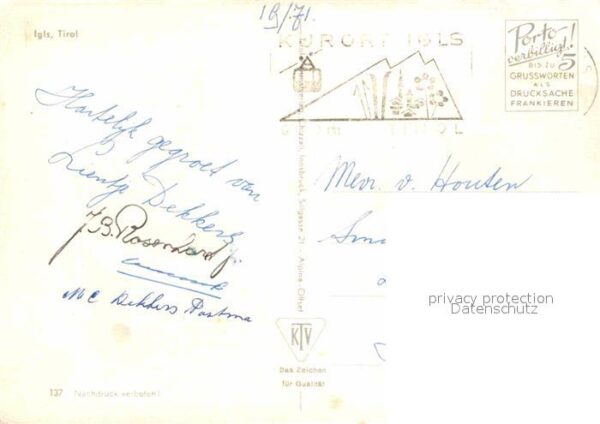 19/71.
Igls, Tirol
KURORT IGLS
TIROL
Porto
verbilligt!
BIS ZU 5
GRUSSWORTEN
ALS
DRUCKSACHE
FRANKIEREN
Hartelijk gegroet van
Lientje Dekkers
J.B. Rosenhart
MC Dekkers Postma
Mevr. v. Houten
Innsbruck, Sillgasse 21 - Alpina-Offset
privacy protection
Datenschutz
KTV
Das Zeichen
für Qualität
137 Nachdruck verboten!